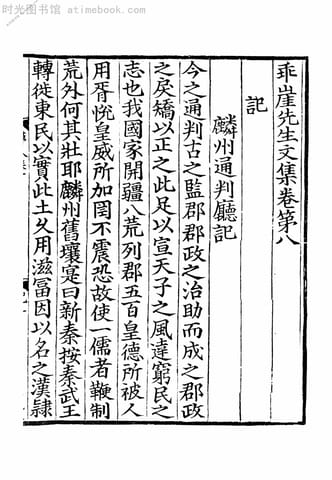 时光图书馆 - atimebook.com
乖崖先生文集卷第八
記
麟州通判廳記
今之通判古之監郡郡政之治助而成之郡政
之戾矯以正之此足以宣天子之風達窮民之
志也我國家開疆八荒列郡五百皇德所被人
用胥悅皇威所加罔不震恐故使一儒者鞭制
荒外何其壯耶麟州舊壤寔曰新秦按秦武王
轉徙東民以實此土久用滋富因以名之漢隸